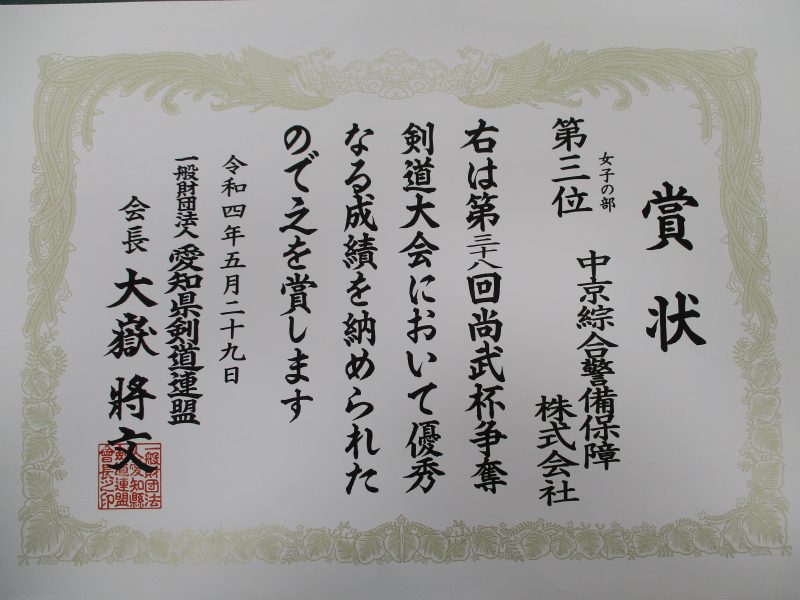 賞状
女子の部
第三位
中京綜合警備保障
株式会社
右は第三十八回尚武杯争奪
剣道大会において優秀
なる成績を納められた
ので之を賞します
令和四年五月二十九日
一般財団法人 愛知県剣道連盟
会長 大嶽將文
一般財団法
人愛知縣
剣道連盟
會長之印